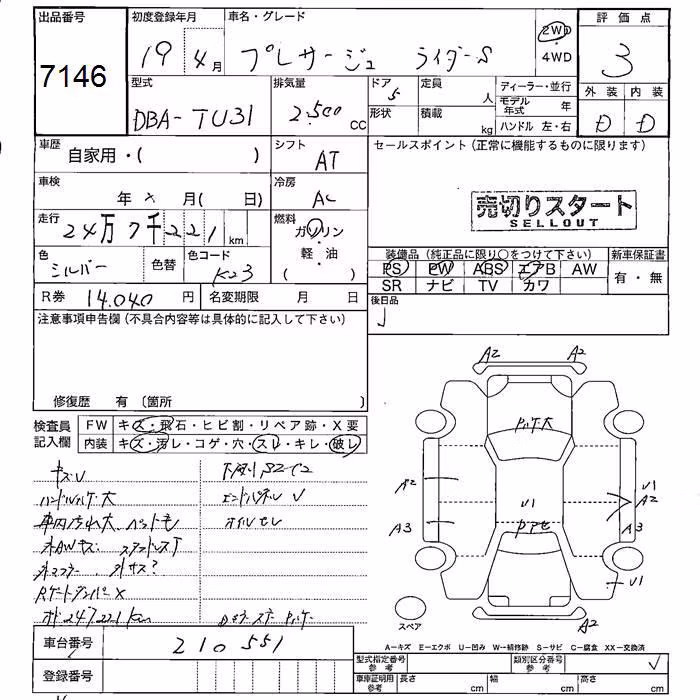 出品番号
7146
初度登録年月
19 4月
車名・グレード
プレサージュ ライダーS
2WD
・
4WD
評価点
3
型式
DBA-TU31
排気量
2,500 cc
ドア
5
定員
人
形状
積載
kg
ディーラー・並行
モデル年式 年
ハンドル 左・右
外装 内装
D D
車歴
自家用・( )
シフト
AT
車検
年 × 月( 日)
冷房
AC
走行
24万7千221 km
燃料
ガソリン
・
軽・油
( )
色
シルバー
色替
色コード
K23
R券 14,040 円
名変期限 月 日
セールスポイント(正常に機能するものに限ります)
売切りスタート
SELLOUT
装備品(純正品に限り○をつけて下さい)
PS PW ABS エアB AW
SR ナビ TV カワ
新車保証書
有・無
後日品
注意事項申告欄(不具合内容等は具体的に記入して下さい)
修復歴 有〔箇所 〕
検査員記入欄
FW キズ・飛石・ヒビ割・リペア跡・X要
内装 キズ・汚レ・コゲ・穴・スレ・キレ・破レ
キズU
ハンドルハゲ大
車内汚れ大、
外AWキズ
外マフラー、外サス?
Rゲートダンパー×
オイルモレ
A2 A2
A2
A3
U1
U1
A2
A3
U1
A2
スペア
A−キズ E−エクボ U−凹み W−補修跡 S−サビ C−腐食 XX−交換済
車台番号 210551
登録番号
型式指定番号 参考
類別区分番号 参考
車庫証明用 参考
長さ cm
幅 cm
高さ cm